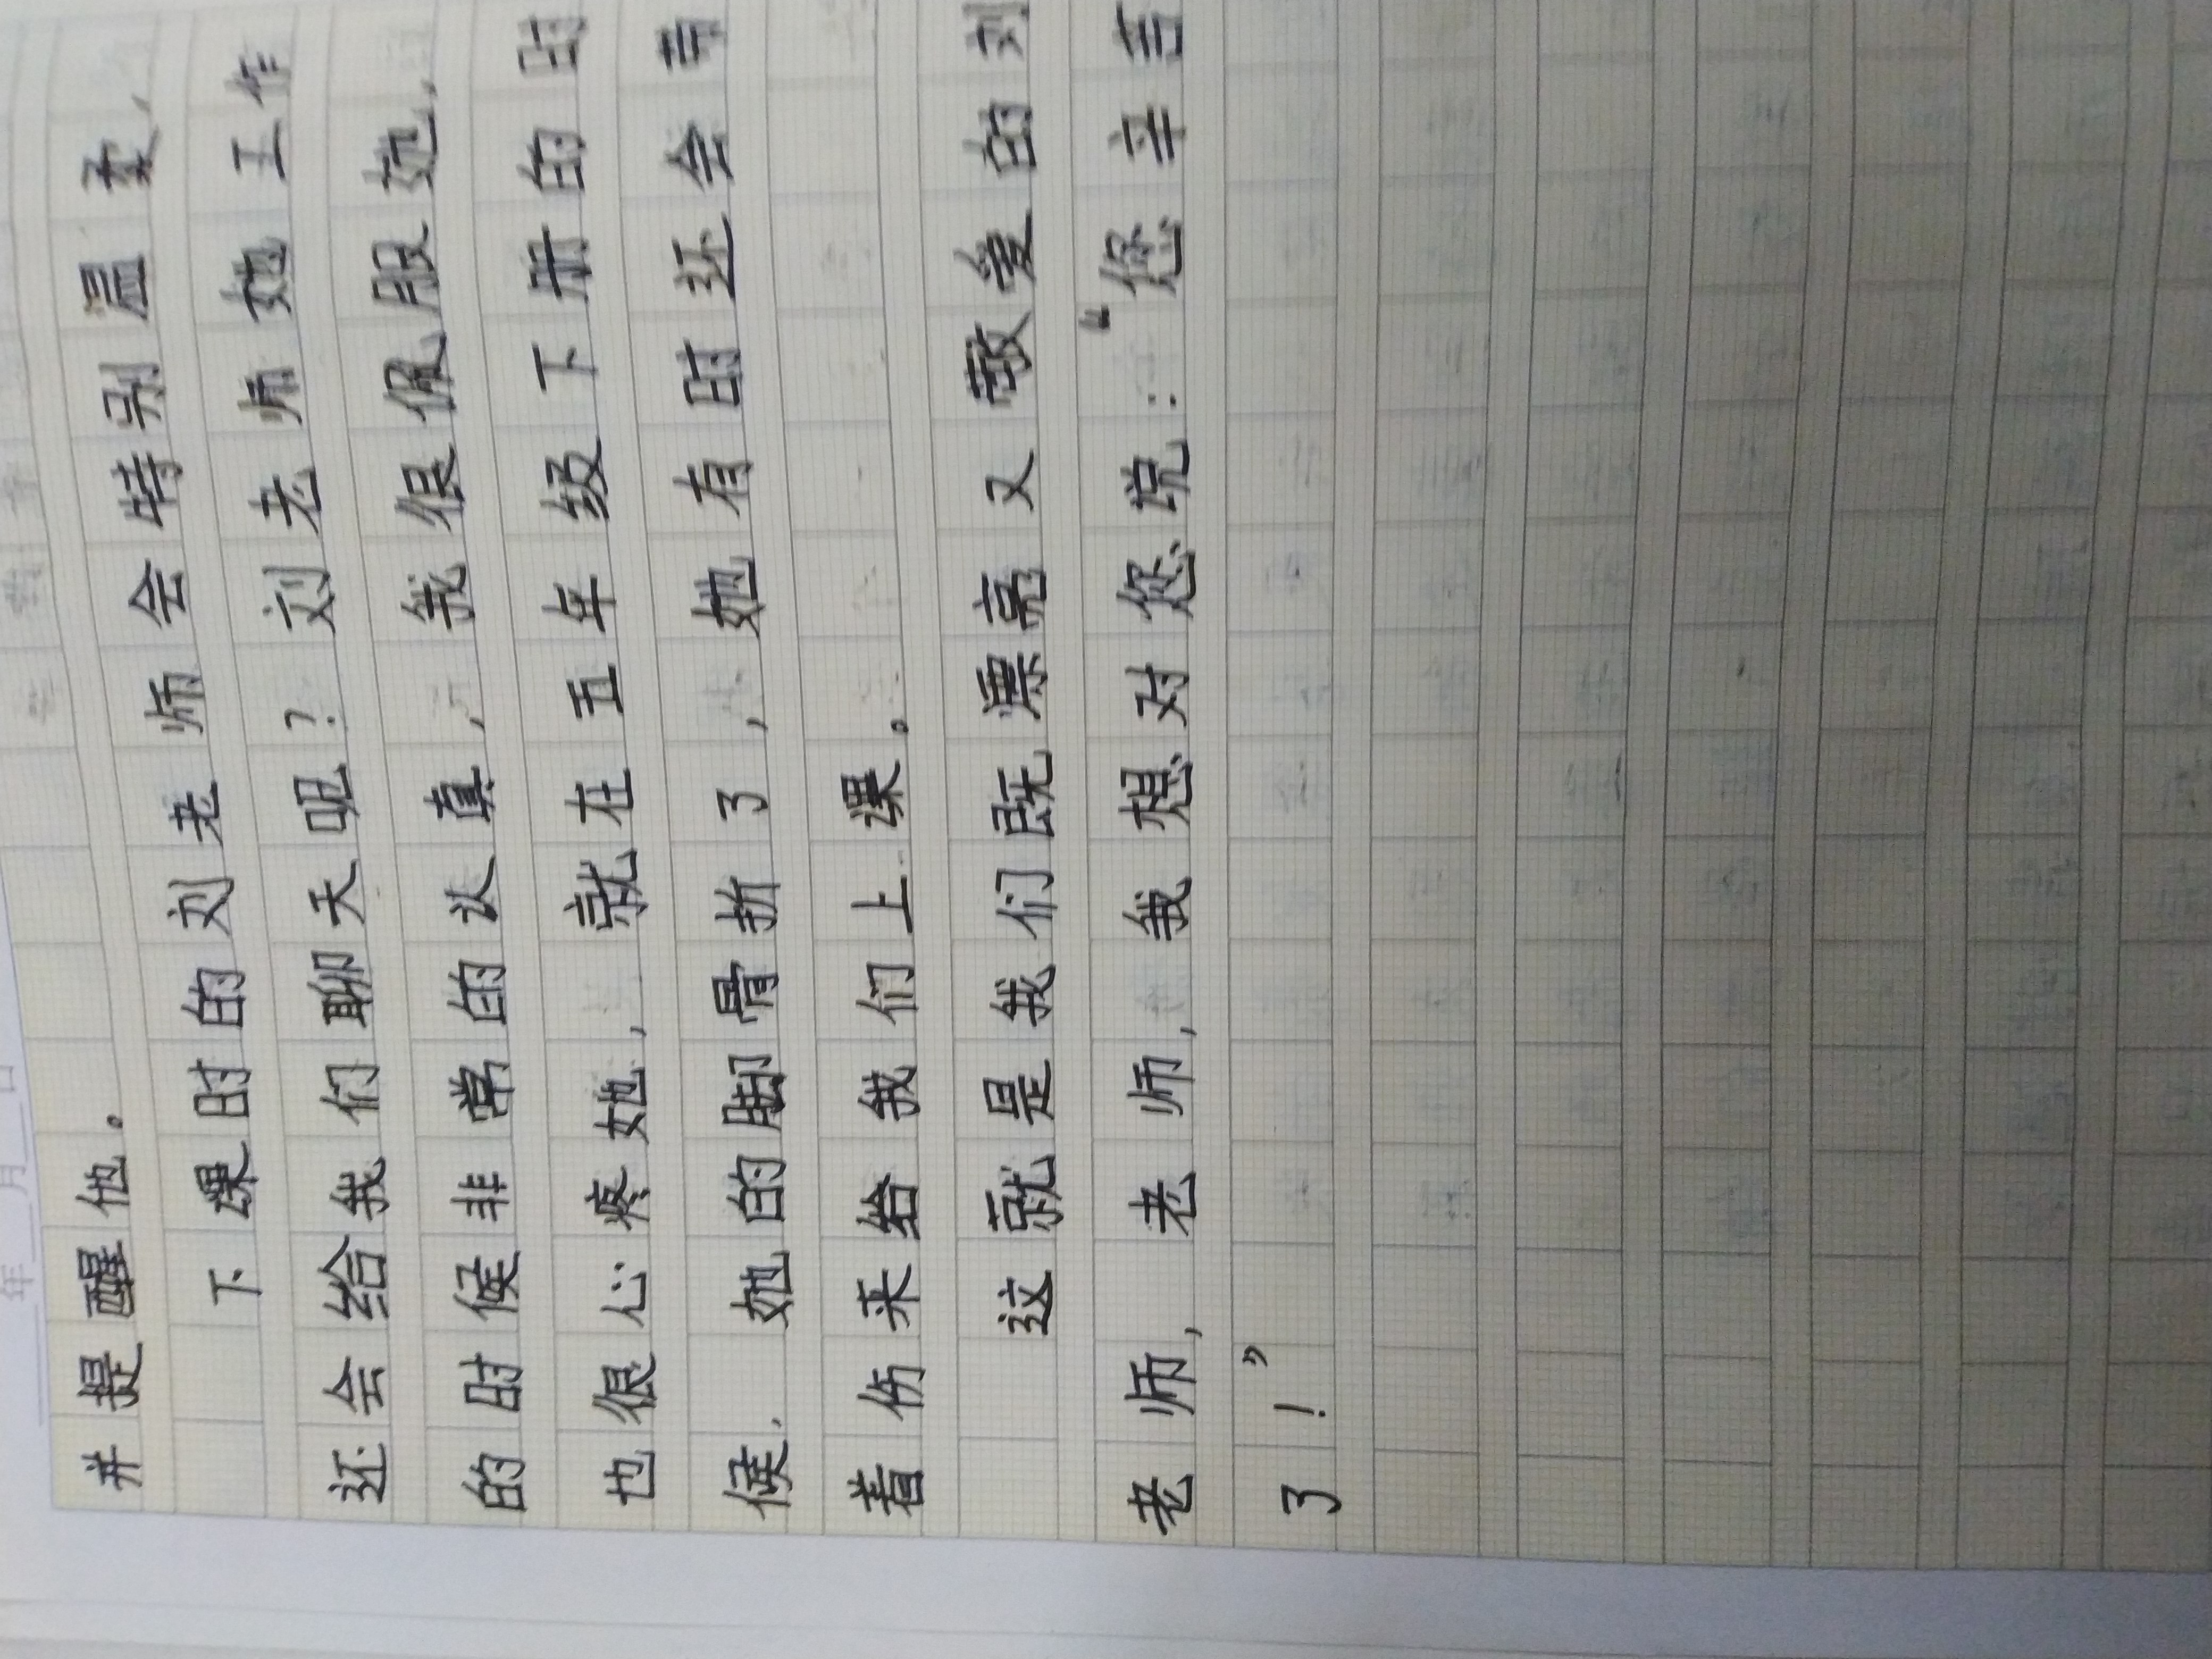 年 月 日
并提醒他。
下课时的刘老师会特别温柔,
还会给我们聊天呢?刘老师她工作
的时候非常的认真,我很佩服她,
也很心疼她,就在五年级下册的时
候,她的脚骨折了,她有时还会带
着伤来给我们上课。
这就是我们既漂亮又敬爱的刘
老师,老师,我想对您说:“您辛苦
了!”